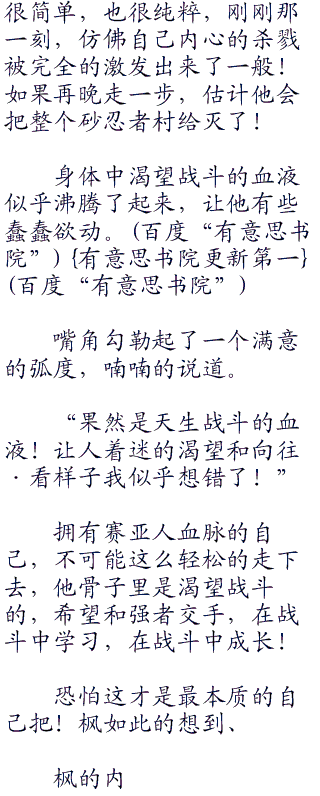 很简单，也很纯粹，刚刚那
一刻，仿佛自己内心的杀戮
被完全的激发出来了一般！
如果再晚走一步，估计他会
把整个砂忍者村给灭了！
身体中渴望战斗的血液
似乎沸腾了起来，让他有些
蠢蠢欲动。(百度“有意思书
院”) {有意思书院更新第一}
(百度“有意思书院”)
嘴角勾勒起了一个满意
的弧度，喃喃的说道。
“果然是天生战斗的血
液！让人着迷的渴望和向往
·看样子我似乎想错了！”
拥有赛亚人血脉的自
己，不可能这么轻松的走下
去，他骨子里是渴望战斗
的，希望和强者交手，在战
斗中学习，在战斗中成长！
恐怕这才是最本质的自
己把！枫如此的想到、
枫的内